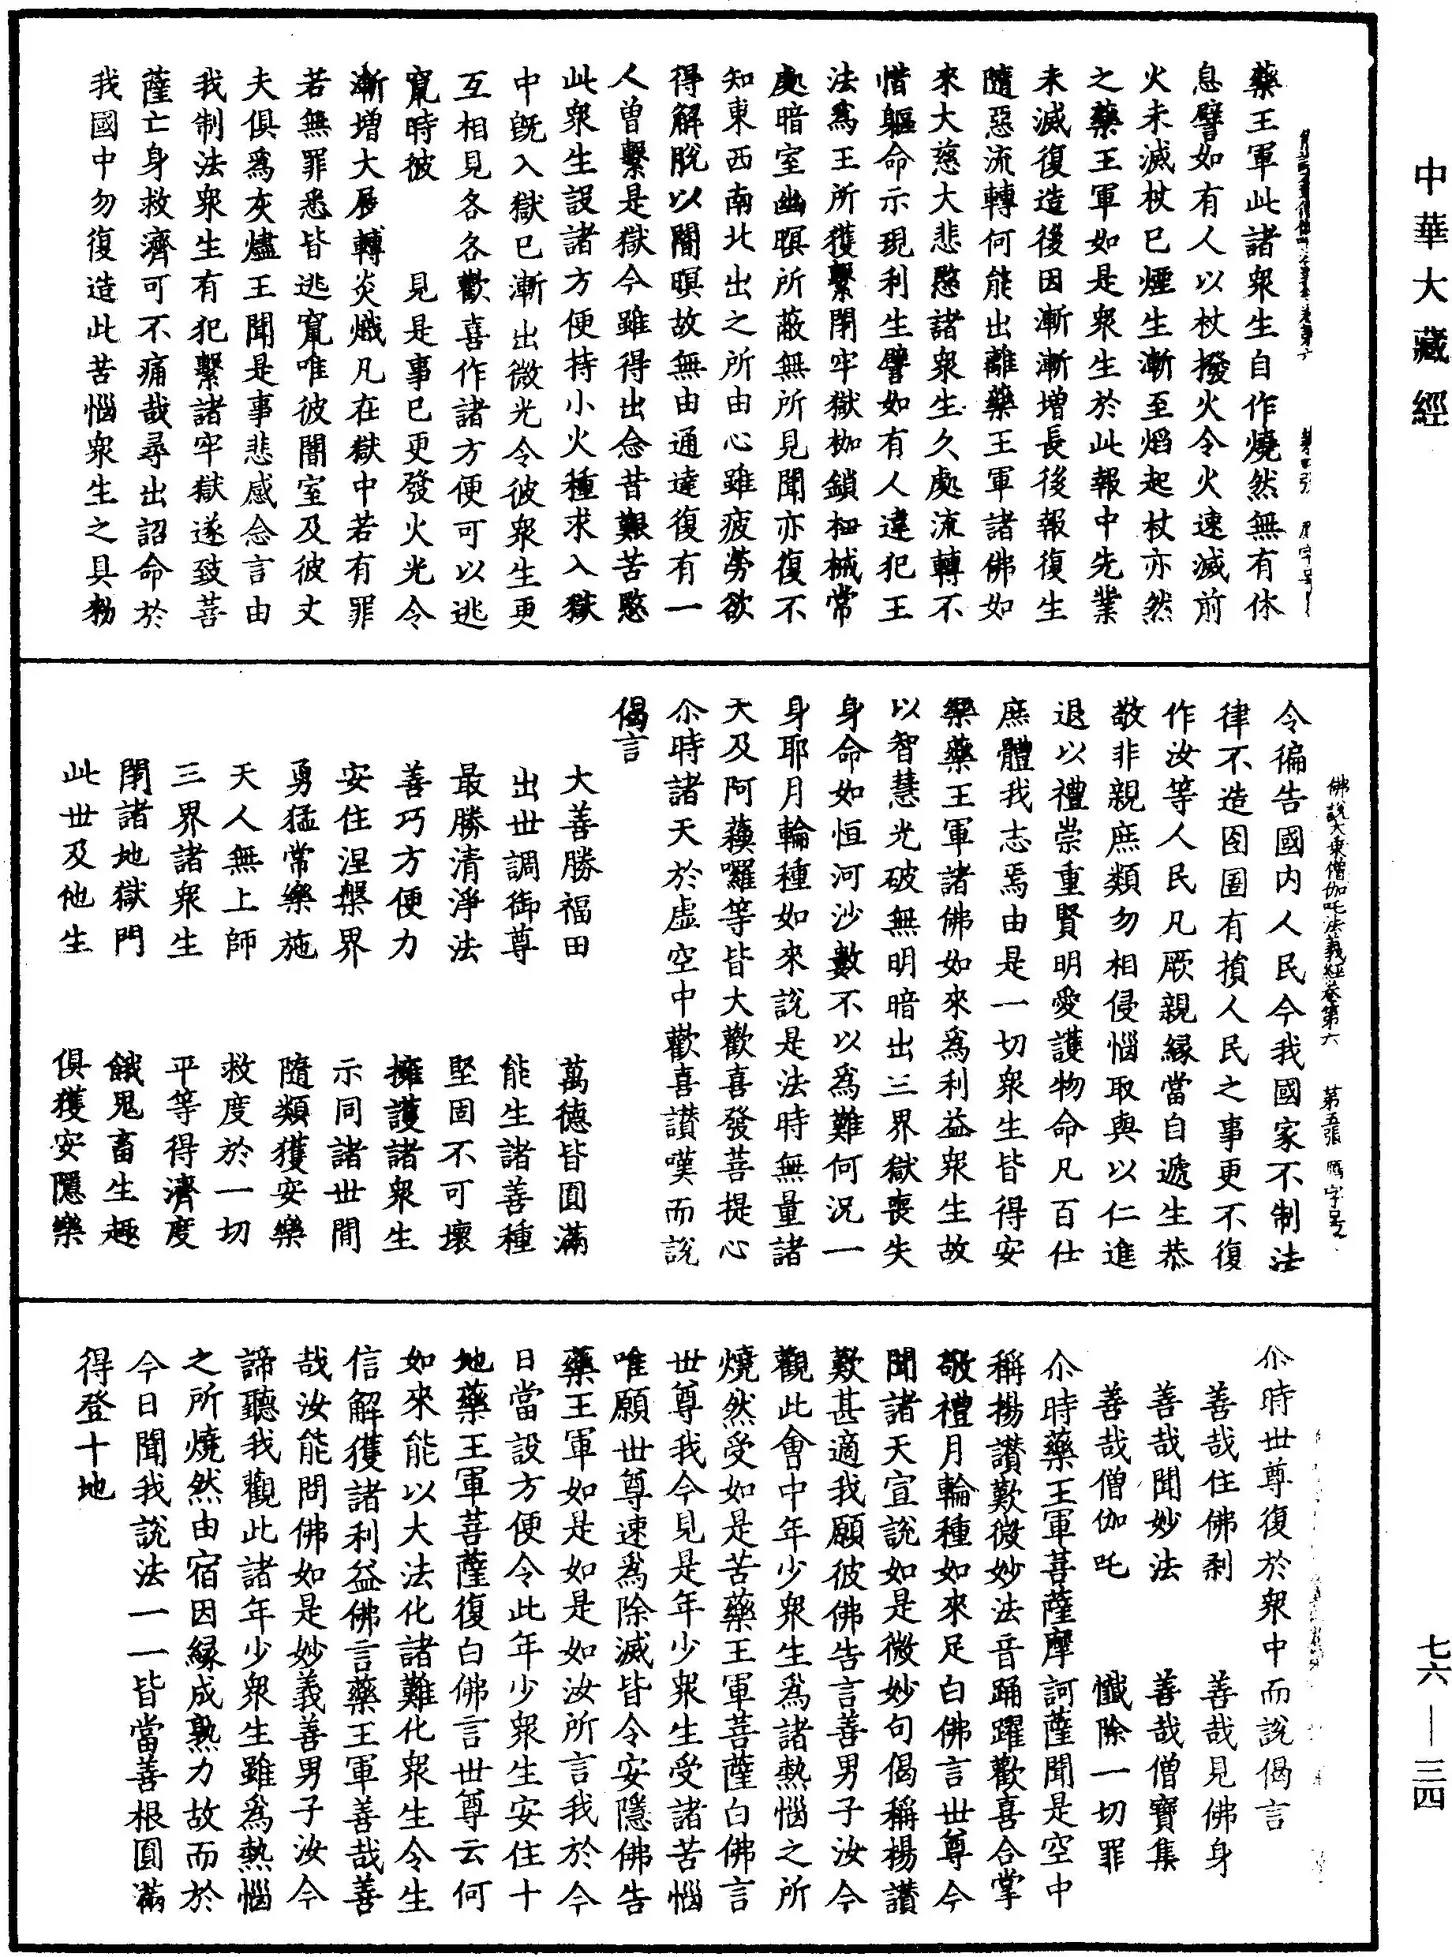 中華大藏經
藥王軍此諸衆生自作燒然無有休
息譬如有人以杖撥火令火速滅前
火未滅杖已煙生漸至熖起杖亦然
之藥王軍如是衆生於此報中先業
未滅復造後因漸漸增長後報復生
隨惡流轉何能出離藥王軍諸佛如
來大慈大悲愍諸衆生久處流轉不
惜軀命示現利生譬如有人違犯王
法爲王所獲繫閉牢獄枷鎖杻械常
處暗室幽暝所蔽無所見聞亦復不
知東西南北出之所由心雖疲勞欲
得解脫以闇暝故無由通達復有一
人曾繫是獄今雖得出念昔艱苦愍
此衆生設諸方便持小火種求入獄
中旣入獄已漸出微光令彼衆生更
互相見各各歡喜作諸方便可以逃
竄時彼 見是事已更發火光令
漸增大展轉炎熾凡在獄中若有罪
若無罪悉皆逃竄唯彼闇室及彼丈
夫俱爲灰燼王聞是事悲感念言由
我制法衆生有犯繫諸牢獄遂致菩
薩亡身救濟可不痛哉尋出詔命於
我國中勿復造此苦惱衆生之具勑
佛說大乘僧伽吒法義經卷第六 第五張
令徧告國內人民今我國家不制法
律不造囹圄有損人民之事更不復
作汝等人民凡厥親緣當自遞生恭
敬非親庶類勿相侵惱取與以仁進
退以禮崇重賢明愛護物命凡百仕
庶體我志焉由是一切衆生皆得安
樂藥王軍諸佛如來爲利益衆生故
以智慧光破無明暗出三界獄喪失
身命如恒河沙數不以爲難何況一
身耶月輪種如來說是法時無量諸
天及阿蘓囉等皆大歡喜發菩提心
尒時諸天於虛空中歡喜讃嘆而說
偈言
大善勝福田 萬德皆圓滿
出世調御尊 能生諸善種
最勝清淨法 堅固不可壞
善巧方便力 擁護諸衆生
安住涅槃界 示同諸世間
勇猛常樂施 隨類獲安樂
天人無上師 救度於一切
三界諸衆生 平等得濟度
閉諸地獄門 餓鬼畜生趣
此世及他生 俱獲安隱樂
尒時世尊復於衆中而說偈言
善哉住佛刹 善哉見佛身
善哉聞妙法 善哉僧寶集
善哉僧伽吒 懺除一切罪
尒時藥王軍菩薩摩訶薩聞是空中
稱揚讃歎微妙法音踊躍歡喜合掌
敬禮月輪種如來足白佛言世尊今
聞諸天宣說如是微妙句偈稱揚讃
歎甚適我願彼佛告言善男子汝今
觀此會中年少衆生爲諸熱惱之所
燒然受如是苦藥王軍菩薩白佛言
世尊我今見是年少衆生受諸苦惱
唯願世尊速爲除滅皆令安隱佛告
藥王軍如是如是如汝所言我於今
日當設方便令此年少衆生安住十
地藥王軍菩薩復白佛言世尊云何
如來能以大法化諸難化衆生令生
信解獲諸利益佛言藥王軍善哉善
哉汝能問佛如是妙義善男子汝今
諦聽我觀此諸年少衆生雖爲熱惱
之所燒然由宿因緣成熟力故而於
今日聞我說法一一皆當善根圓滿
得登十地
七六—三四